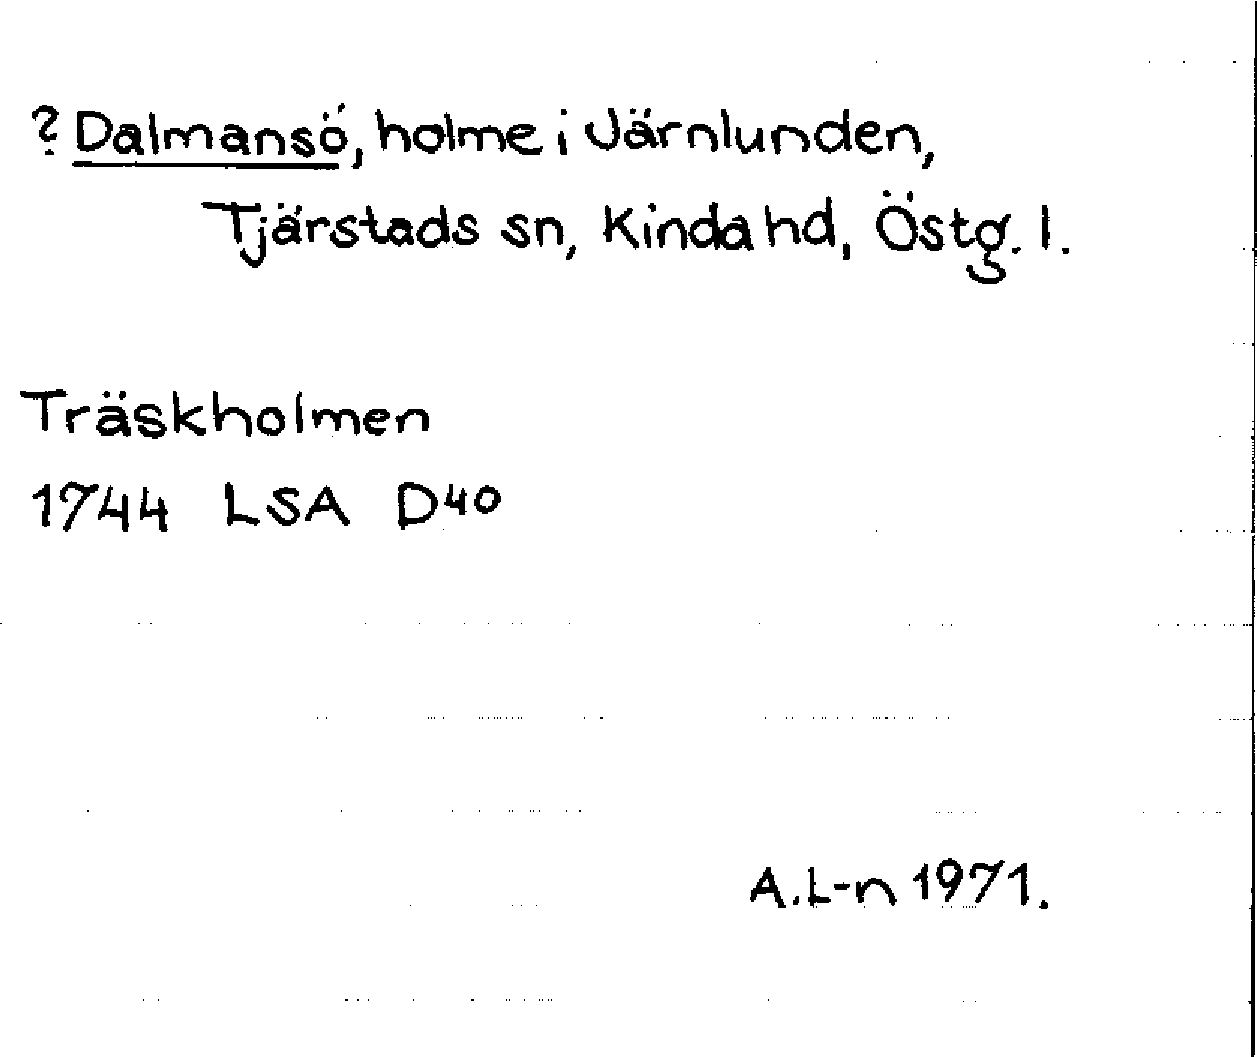 ? Dalmansö, holme i Järnlunden,
Tjärstads sn, Kinda hd, Östg. l.
Träskholmen
1744 LSA D40
A.L-n 1971.